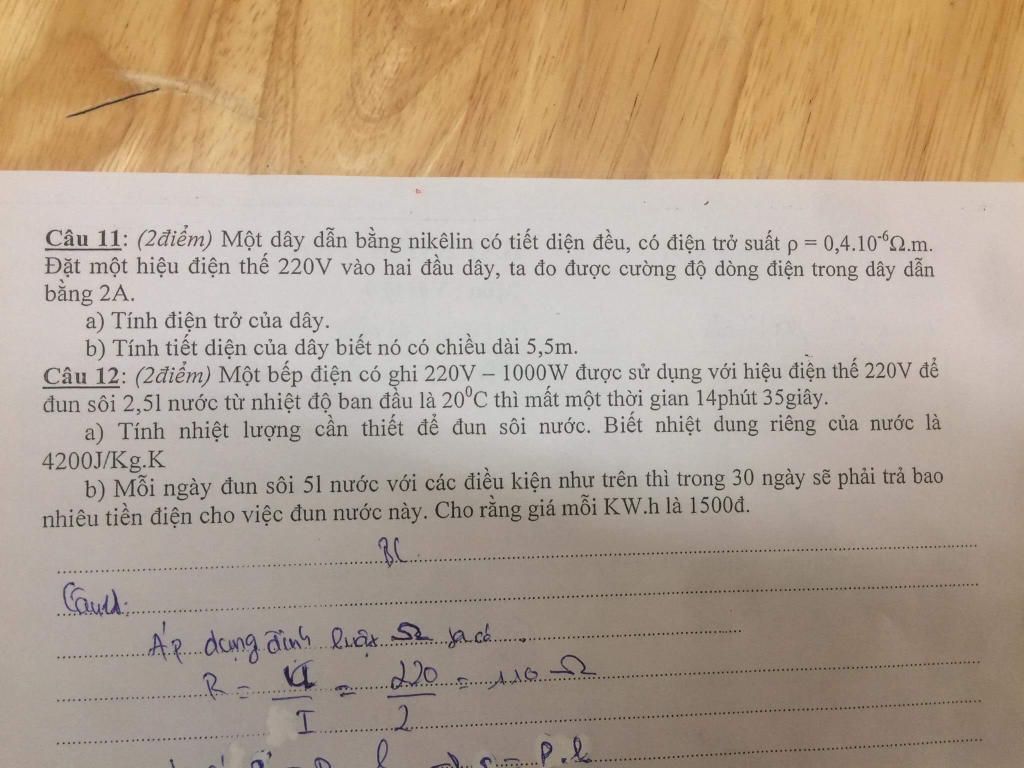 Câu 11: (2điểm) Một dây dẫn bằng nikêlin có tiết diện đều, có điện trở suất ρ = 0,4.10⁻⁶Ω.m.
Đặt một hiệu điện thế 220V vào hai đầu dây, ta đo được cường độ dòng điện trong dây dẫn
bằng 2A.
a) Tính điện trở của dây.
b) Tính tiết diện của dây biết nó có chiều dài 5,5m.
Câu 12: (2điểm) Một bếp điện có ghi 220V – 1000W được sử dụng với hiệu điện thế 220V để
đun sôi 2,5l nước từ nhiệt độ ban đầu là 20⁰C thì mất một thời gian 14phút 35giây.
a) Tính nhiệt lượng cần thiết để đun sôi nước. Biết nhiệt dung riêng của nước là
4200J/Kg.K
b) Mỗi ngày đun sôi 5l nước với các điều kiện như trên thì trong 30 ngày sẽ phải trả bao
nhiêu tiền điện cho việc đun nước này. Cho rằng giá mỗi KW.h là 1500đ.
BL
Câu 11:
Áp dụng định luật Ω ta có
R = U/I = 220/2 = 110 Ω